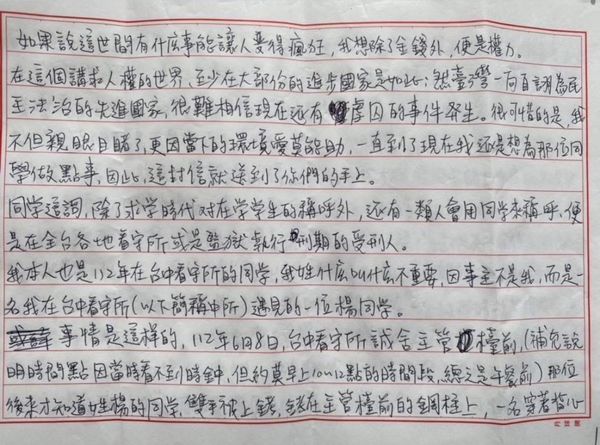 如果說這世間有什庅事能讓人變得瘋狂，我想除了金錢外，便是權力。
在這個講求人權的世界，至少在大部份的進步國家是如此；然臺灣一向自詡為民
主法治的先進國家，很難相信現在还有虐囚的事件發生。很可惜的是，我
不但親眼目睹了，更因當下的環境愛莫能助，一直到了現在我还是想為那位同
學做點事，因此，這封信就送到了你們的手上。
同学這詞，除了求学時代对在学学生的稱呼外，还有一類人會用同学來稱呼，便
是在全台各地看守所或是監獄執行刑期的受刑人。
我本人也是112年在台中看守所的同学，我姓什庅叫什庅不重要，因事主不是我，而是一
名我在台中看守所（以下簡稱中所）遇見的一位楊同学。
事情是這样的，112年6月8日，台中看守所誠舍主管檯前，（補充說
明時間點因當時看不到時鐘，但約莫早上10～12點的時間段，總之是午餐前）那位
後來才知道姓楊的同学，雙手被上銬，銬在主管檯前的鋼柱上，一名穿著背心